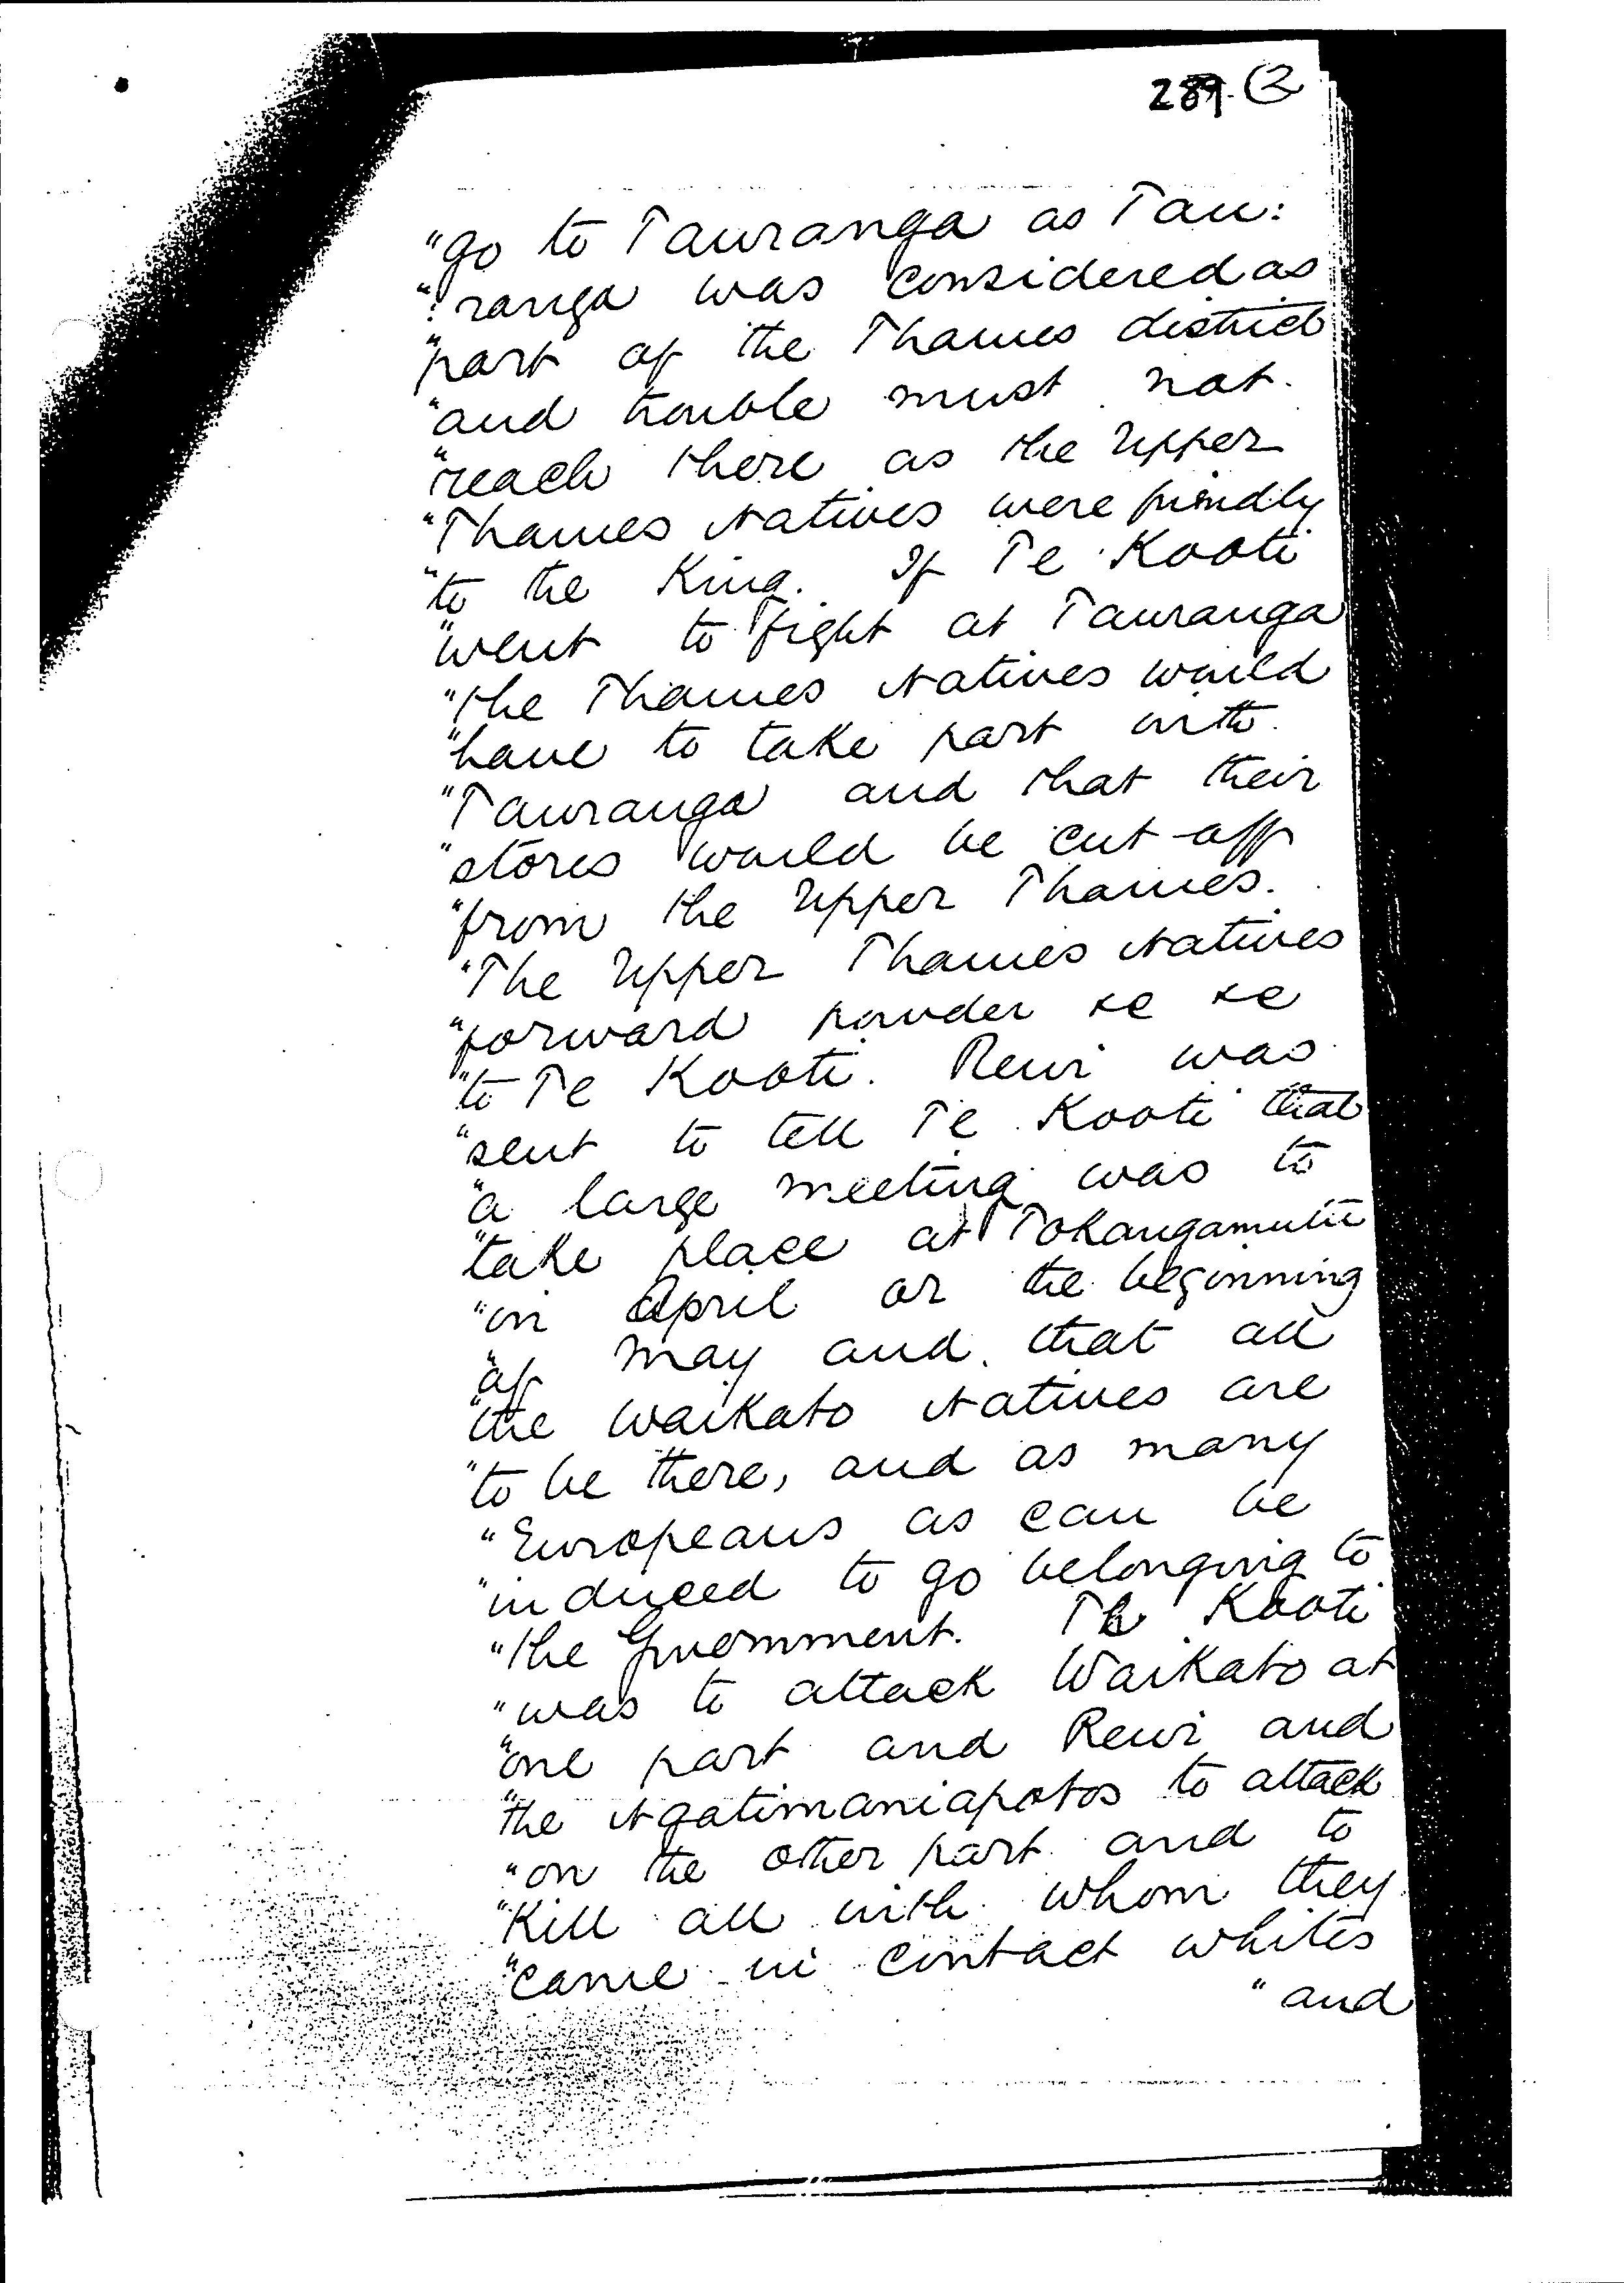 289. (2
"go to Tauranga as Tau:
":ranga was considered as
"part of the Thames district
"and trouble must not
"reach there as the Upper
"Thames Natives were friendly
"to the King. If Te Kooti
"went to fight at Tauranga
"the Thames Natives would
"have to take part with
"Tauranga and that their
"stores would be cut off
"from the Upper Thames.
"The Upper Thames Natives
"forward powder &c &c
"to Te Kooti. Rewi was
"sent to tell Te Kooti that
"a large meeting was to
"take place at Tokangamutu
"in April or the beginning
"of May and that all
"the Waikato Natives are
"to be there, and as many
"Europeans as can be
"induced to go belonging to
"the Government. Te Kooti
"was to attack Waikato at
"one part and Rewi and
"the Ngatimaniapotos to attack
"on the other part and to
"Kill all with whom they
"came in contact whites
"and